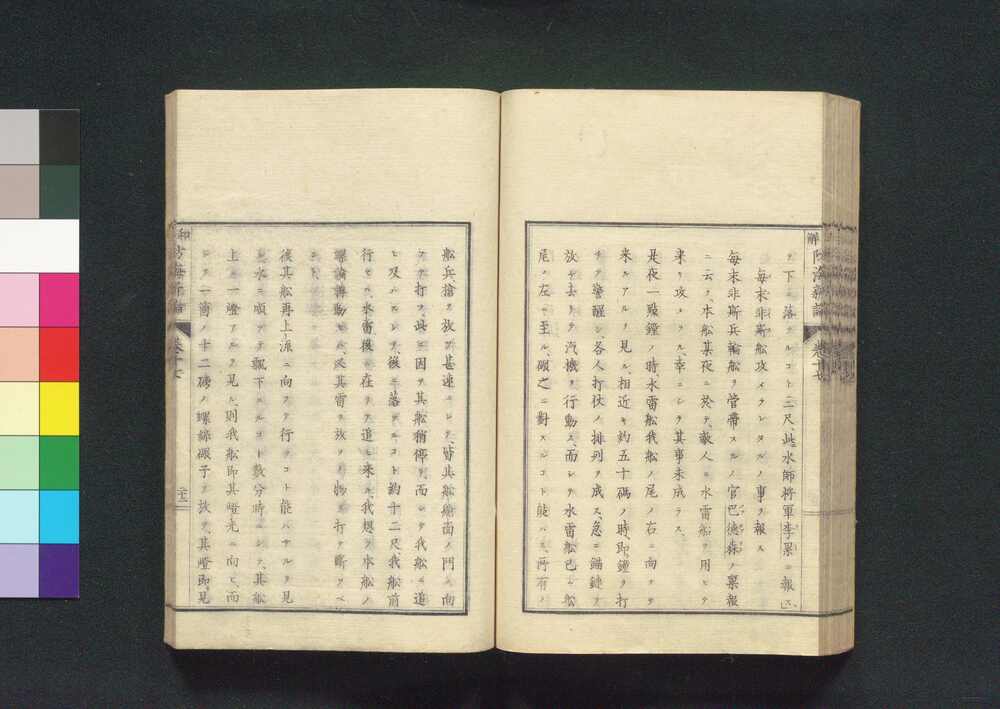 ヲ下ニ落ツルコト三尺、此水師将軍李累ニ報已、
毎末非斯舩攻メラレタルノ事ヲ報ス
毎末非斯兵輪舩ヲ管帶スルノ官巴德森ノ稟報
ニ云ク、本舩某夜ニ於テ、敵人ニ水雷舩ヲ用ヒテ
来リ攻メラル幸ニシテ其事未成ラス、
是夜一點鐘ノ時水雷舩我舩ノ尾ノ右ニ向ヲテ
来ルアルヲ見ル、相近キ約五十碼ノ時、即鐘ヲ打
チテ警醒シ、各人打仗ノ排列ヲ成ス、急ニ錨鏈ヲ
放セ去リテ汽機ヲ行動ス、而レテ水雷舩已ニ舩
尾ノ左ニ至ル、礟之ニ對スルコト能ハス、所有ノ
舩兵搶ヲ放ツ甚速ニシテ、皆其舩艙面ノ門ニ向
テ打ツ、此ニ因テ其舩稍停ル、而シテ我舩ニ追
ヒ及ハスシテ、後ニ落ツルコト約十二尺、我舩前
行セハ、水雷後ニ在テ追ヒ来ル、我想フ本舩ノ
螺輪轉動セハ、必其雷ヲ放ツノ物ヲ打テ斷ツヘ
後其舩再上派ニ向ヲテ行ヲコト能ハサルヲ見
水ニ順ヲテ飄下スルコト数分時ニシテ、其舩
上ニ一燈アルヲ見ル、則我舩即其燈光ニ向ヒ、而
シテ一箇ノ十二磅ノ螺絲礟子ヲ放ツ、其燈即見
卷十七